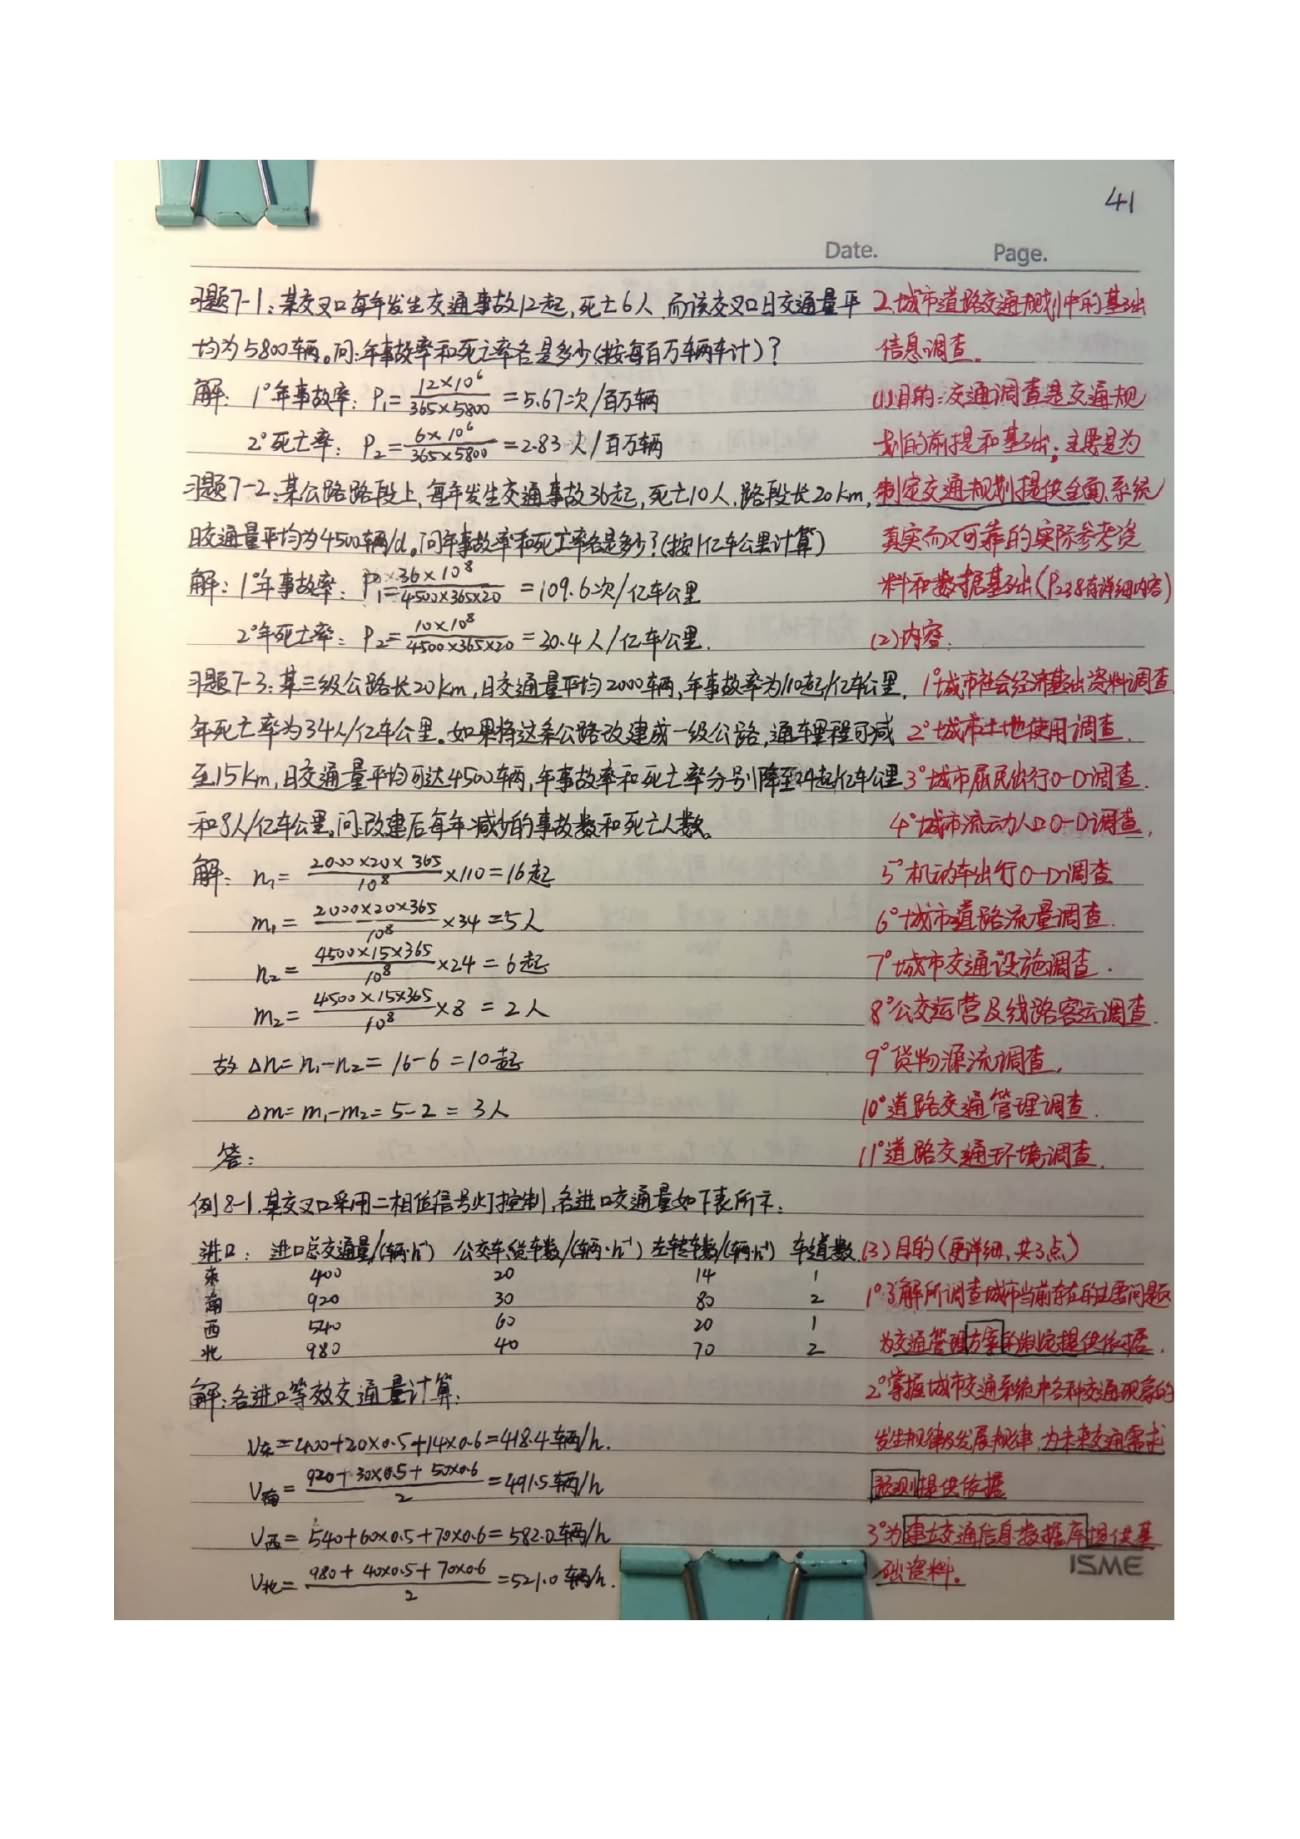 41
Date. Page.
习题7-1:某交叉口每年发生交通事故12起,死亡6人,而该交叉口日交通量平
均为5800车辆。问:年事故率和死亡率各是多少(按每百万车辆车计)?
解: 1°年事故率: P₁=12×10⁶/365×5800=5.67次/百万辆
2°死亡率: P₂=6×10⁶/365×5800=2.83次/百万辆
习题7-2:某公路路段上,每年发生交通事故36起,死亡10人,路段长20km,
日交通量平均为4500车辆/d。问年事故率和死亡率各是多少?(按1亿车公里计算)
解: 1°年事故率: P₁=36×10⁸/4500×365×20=109.6次/亿车公里
2°年死亡率: P₂=10×10⁸/4500×365×20=30.4人/亿车公里.
习题7-3:某三级公路长20km,日交通量平均2000车辆,年事故率为110起/亿车公里,
年死亡率为34人/亿车公里。如果将这条公路改建成一级公路,通车里程可减
至15km,日交通量平均可达4500车辆,年事故率和死亡率分别降至24起/亿车公里
和8人/亿车公里。问:改建后每年减少的事故数和死亡人数。
解: n₁=2000×20×365/10⁸×110=16起
m₁=2000×20×365/10⁸×34=5人
n₂=4500×15×365/10⁸×24=6起
m₂=4500×15×365/10⁸×8=2人
故 Δn=n₁-n₂=16-6=10起
Δm=m₁-m₂=5-2=3人
答:
例8-1.某交叉口采用二相位信号灯控制,各进口交通量如下表所示:
进口: 进口总交通量/(辆·h⁻¹) 公交车、货车数/(辆·h⁻¹) 左转车数/(辆·h⁻¹) 车道数
东 400 20 14 1
南 920 30 80 2
西 540 60 20 1
北 980 40 70 2
解:各进口等效交通量计算:
V东=400+20×0.5+14×0.6=418.4车辆/h.
V南=920+30×0.5+50×0.6/2=491.5车辆/h
V西=540+60×0.5+70×0.6=582.0车辆/h
V北=980+40×0.5+70×0.6/2=521.0车辆/h.
2.城市道路交通规划中的基础
信息调查.
(1)目的:交通调查是交通规
划的前提和基础;主要是为
制定交通规划提供全面、系统
真实而又可靠的实际参考资
料和数据基础(P238有详细内容)
(2)内容:
1°城市社会经济基础资料调查
2°城市土地使用调查.
3°城市居民出行O-D调查.
4°城市流动人口O-D调查.
5°机动车出行O-D调查
6°城市道路流量调查.
7°城市交通设施调查.
8°公交运营及线路客运调查.
9°货物源流调查.
10°道路交通管理调查.
11°道路交通环境调查.
(3)目的(更详细、共3点)
1°了解所调查城市当前存在的主要问题
为交通管理方案的制定提供依据.
2°掌握城市交通系统中各种交通现象的
发生规律及发展规律,为未来交通需求
预测提供依据
3°为建立交通信息数据库提供基
础资料。
ISME